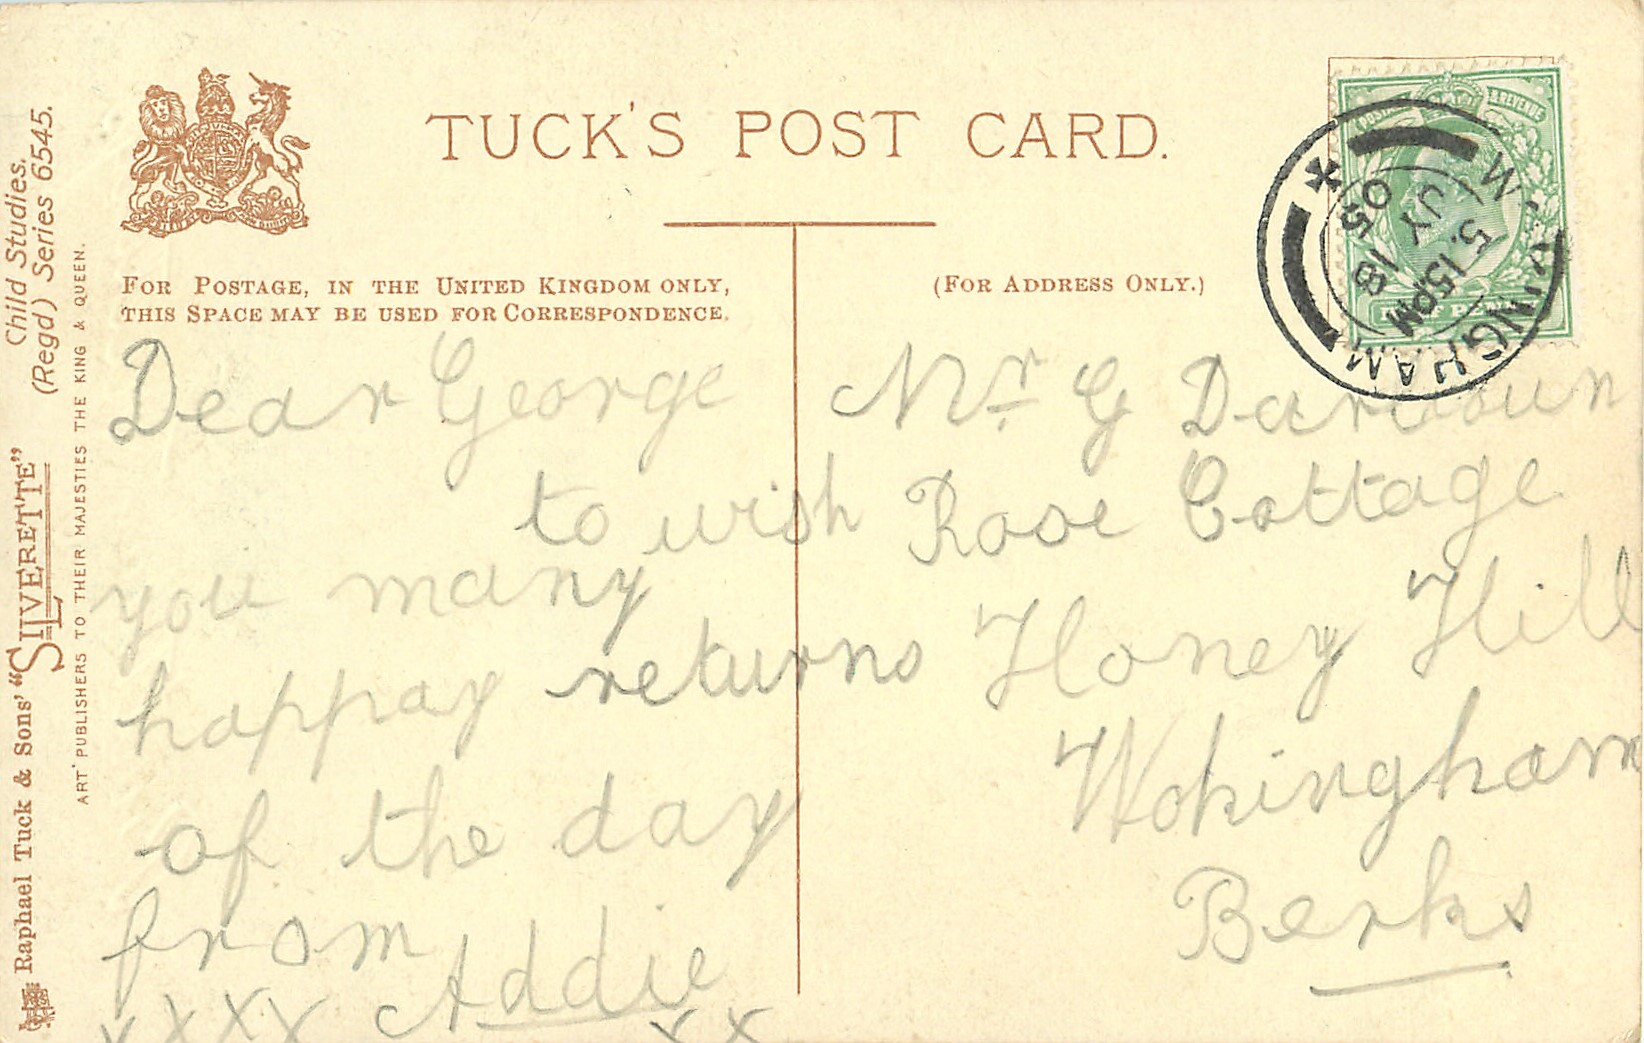 TUCK'S POST CARD.
FOR POSTAGE, IN THE UNITED KINGDOM ONLY,
THIS SPACE MAY BE USED FOR CORRESPONDENCE.
(FOR ADDRESS ONLY.)
Dear George
to wish
you many
happay returns
of the day
from Addie
x x x x x x
Mr G
Rose Cottage
Honey Hill
Wokingham
Berks
POSTAGE & REVENUE
HALF PENNY
WOKINGHAM
5.15PM
JY 18
05
Raphael Tuck & Sons' "SILVERETTE"
Child Studies.
(Regd) Series 6545.
ART PUBLISHERS TO THEIR MAJESTIES THE KING & QUEEN.